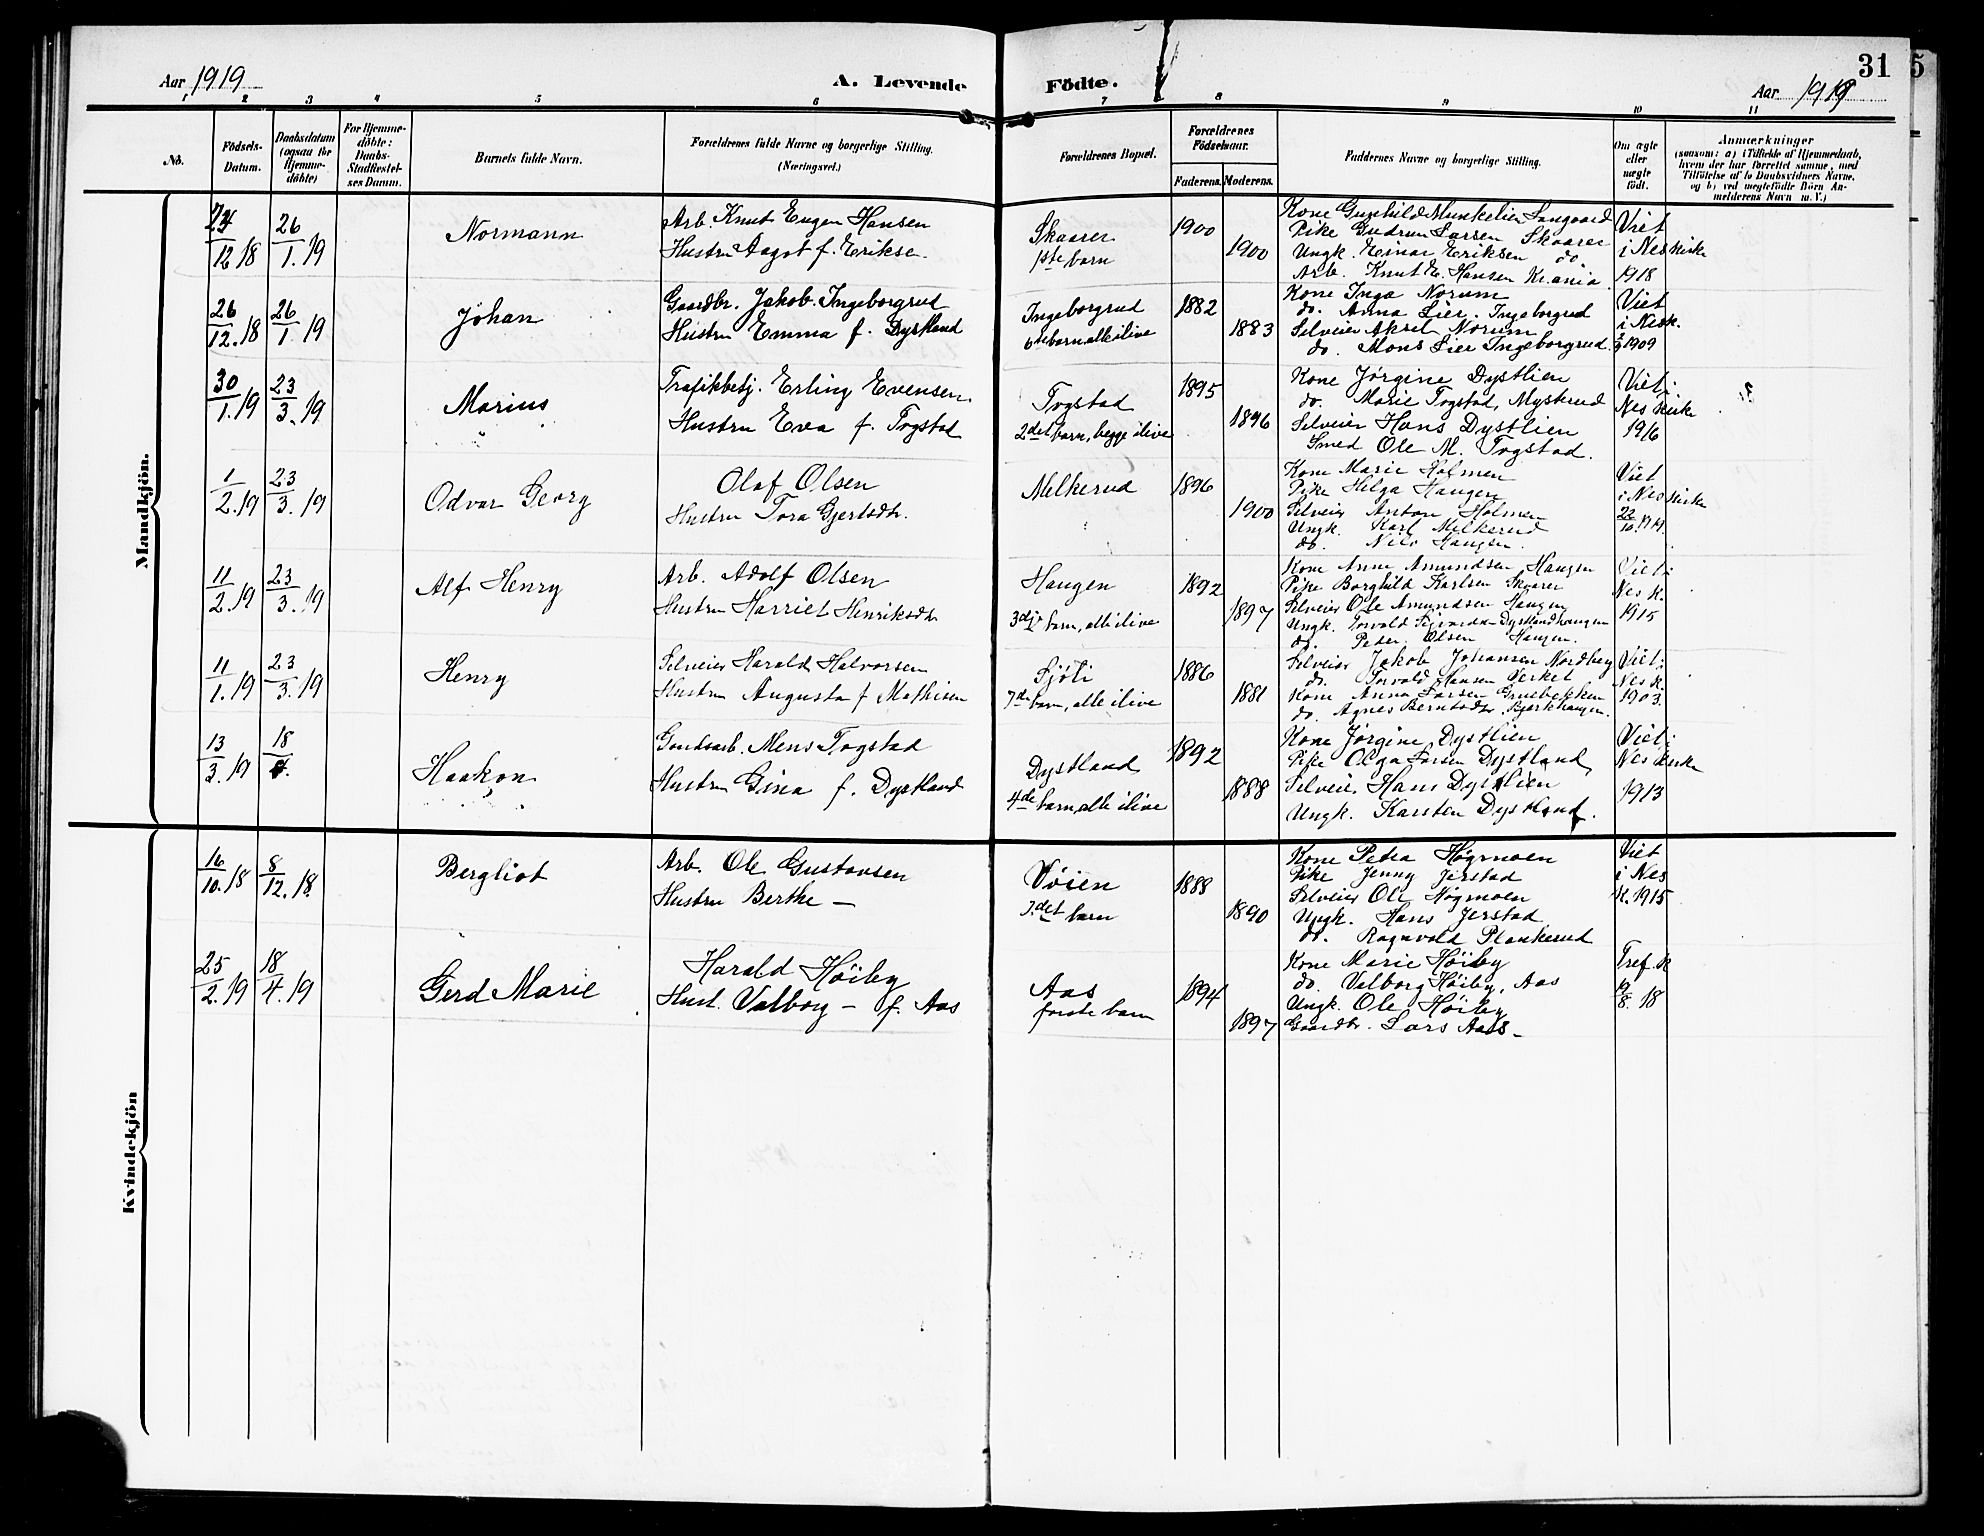 Aar 1919
A. Levende Födte.
Aar 1919
31
5
1 2 3 4 5 6 7 8 9 10 11
No.
Födsels-
Datum.
Daabsdatum
(ogsaa for
Hjemme-
döbte)
For Hjemme-
döbte:
Daabs-
Stadfæstel-
ses Datum.
Barnets fulde Navn.
Forældrenes fulde Navne og borgerlige Stilling.
(Næringsvei.)
Forældrenes Bopæl.
Forældrenes
Födselsaar.
Faderens. Moderens.
Faddernes Navne og borgerlige Stilling.
Om ægte
eller
uægte
födt.
Anmærkninger
(saasom: a) i Tilfælde af Hjemmedaab,
hvem der har forrettet samme, med
Tilföielse af to Daabsvidners Navne,
og b) ved uægtefödte Börn An-
melderens Navn m.V.)
Mandkjön.
24/12 18
26/1.19
Normann
Arb. Knut Eugen Hansen
Hustru Aagot f. Eriksen.
Skaarer
1ste barn
1900
1900
Kone Gunhild Munkelien
Pike Gudrun Larsen Skaarer
Ungk. Einar Eriksen do
Arb. Knut E. Hansen Kr.ania.
Viet
i Nes kirke
1918
26/12.18
26/1.19
Johan
Gaardbr. Jakob Ingeborgrud
Hustru Emma f. Dystland
Ingeborgrud
6te barn alle ilive
1882
1883
Kone Inga Norum
do. Anna Lier, Ingeborgrud
Selveier Aksel Norum
do. Mons Lier Ingeborgrud.
Viet
i Nesk.
1909
30/1.19
23/3.19
Marius
Trafikbetj. Erling Evensen
Hustru Eva f. Togstad
Togstad
2det barn, begge ilive
1895
1896
Kone Jørgine Dystlien
do. Marie Togstad, Mystrud
Selveier Hans Dystlien
Smed Ole M. Togstad.
Viet i
Nes kirke
1916
1/2.19
23/3.19
Odvar Georg
Olaf Olsen
Hustru Tora Gjertsdtr.
Melkerud
1896
1900
Kone Marie Holmen
Pike Helga Haugen
Selveier Anton Holmen
Ungk. Karl Melkerud
do. Nils Haugen.
Viet
i Nes kirke
11/2.19
23/3.19
Alf Henry
Arb. Adolf Olsen
Hustru Harriet Henriksdtr
Haugen
3dje barn, alle ilive
1892
1897
Kone Anne Amundsen Haugen
Pike Borghild Karlsen Skaarer
Selveier Ole Amundsen Haugen
Ungk. Torvald Dystlandhaugen
do. Peder Olsen Haugen.
Viet i
Nes k.
1915
11/1.19
23/3.19
Henry
Selveier Harald Halvorsen
Hustru Augusta f Mathisen
Sjøli
7de barn, alle ilive
1886
1881
Selveier Jakob Johansen Nordberg
do. Torvald Hansen Verket
Kone Anna Larsen Gruebekken
do. Agnes Berntsdtr. Bjerkhaugen.
Viet i
Nes k.
1903.
13/3.19
18/4.
Haakon
Gaardsarb. Mens Togstad
Hustru Gina f. Dystland
Dystland
4de barn, alle ilive
1892
1888
Kone Jørgine Dystlien
Pike Olga Larsen Dystland
Selveier Hans Dystlien
Ungk. Karsten Dystland.
Viet i
Nes kirke
1913
Kvindekjön
16/10.18
8/12.18.
Bergliot
Arb. Ole Gustavsen
Hustru Berthe —
Vøien
1888
1890
Kone Petra Høgmoen
Pike Jenny Jerstad
Selveier Ole Høgmoen
Ungk. Hans Jerstad
do. Ragnvald Plankerud
Viet
i Nes
K. 1915
25/2.19
18/4.19
Gerd Marie
Harald Høiby
Hust. Valborg — f. Aas
Aas
første barn
1894
1897
Kone Marie Høiby
do. Valborg Høiby, Aas
Ungk. Ole Høiby
Gaardbr. Lars Aas —